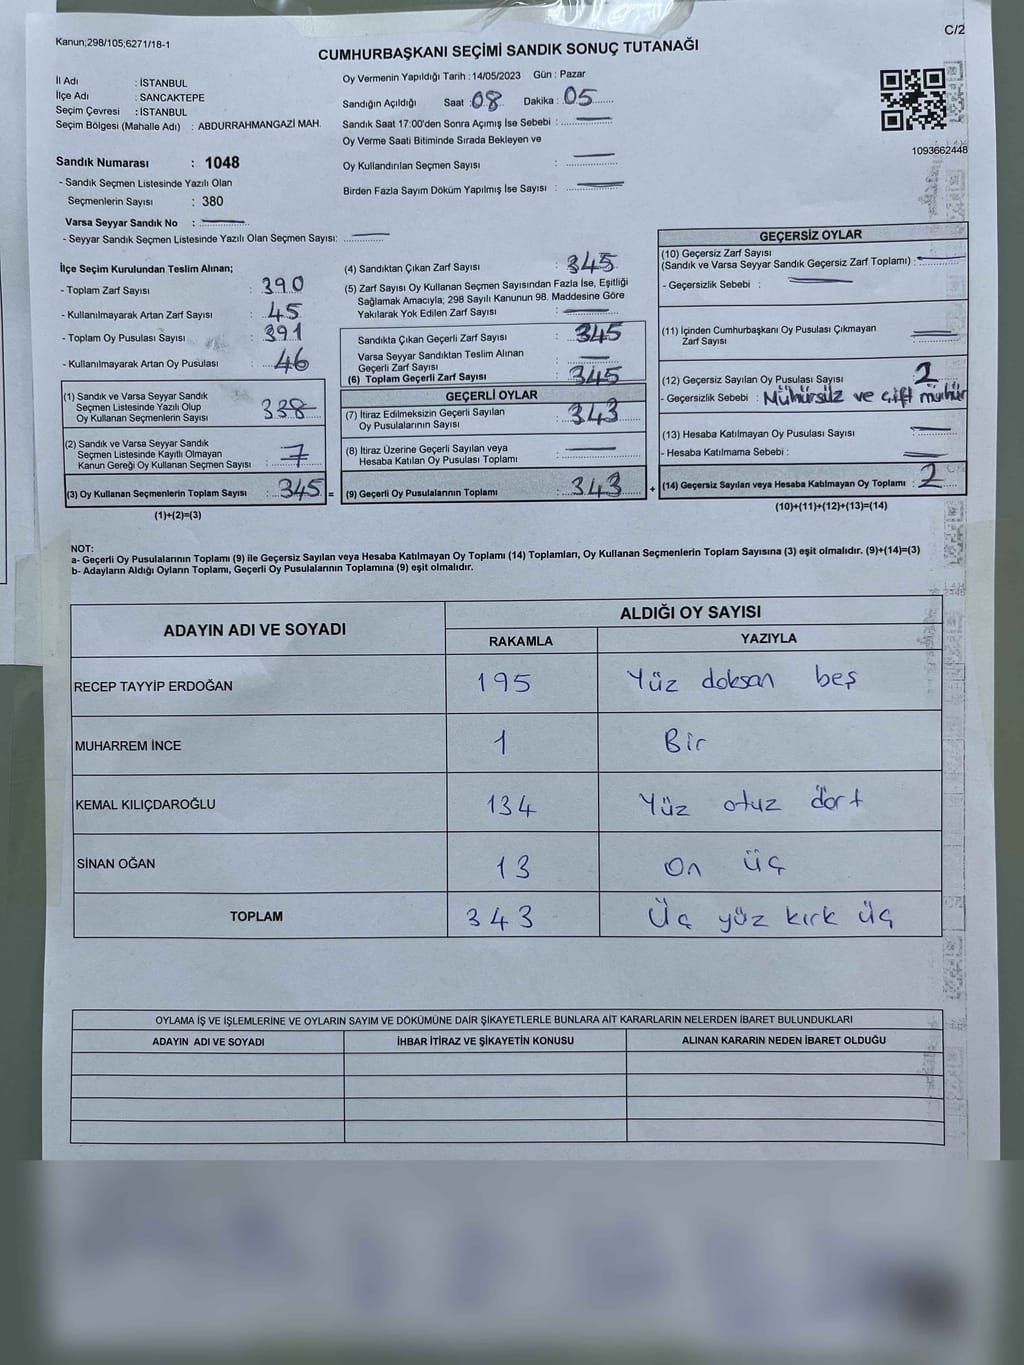 Kanun;298/105;6271/18-1
C/2
CUMHURBAŞKANI SEÇİMİ SANDIK SONUÇ TUTANAĞI
İl Adı : İSTANBUL
İlçe Adı : SANCAKTEPE
Seçim Çevresi : İSTANBUL
Seçim Bölgesi (Mahalle Adı) : ABDURRAHMANGAZİ MAH.
Sandık Numarası : 1048
- Sandık Seçmen Listesinde Yazılı Olan
Seçmenlerin Sayısı : 380
Varsa Seyyar Sandık No :
- Seyyar Sandık Seçmen Listesinde Yazılı Olan Seçmen Sayısı:
Oy Vermenin Yapıldığı Tarih : 14/05/2023 Gün : Pazar
Sandığın Açıldığı Saat : 08 Dakika : 05
Sandık Saat 17:00'den Sonra Açımış İse Sebebi :
Oy Verme Saati Bitiminde Sırada Bekleyen ve
Oy Kullandırılan Seçmen Sayısı :
Birden Fazla Sayım Döküm Yapılmış İse Sayısı :
1093662448
İlçe Seçim Kurulundan Teslim Alınan;
- Toplam Zarf Sayısı : 390
- Kullanılmayarak Artan Zarf Sayısı : 45
- Toplam Oy Pusulası Sayısı : 391
- Kullanılmayarak Artan Oy Pusulası : 46
(1) Sandık ve Varsa Seyyar Sandık
Seçmen Listesinde Yazılı Olup
Oy Kullanan Seçmenlerin Sayısı : 338
(2) Sandık ve Varsa Seyyar Sandık
Seçmen Listesinde Kayıtlı Olmayan
Kanun Gereği Oy Kullanan Seçmen Sayısı : 7
(3) Oy Kullanan Seçmenlerin Toplam Sayısı : 345 =
(1)+(2)=(3)
(4) Sandıktan Çıkan Zarf Sayısı : 345
(5) Zarf Sayısı Oy Kullanan Seçmen Sayısından Fazla İse, Eşitliği
Sağlamak Amacıyla; 298 Sayılı Kanunun 98. Maddesine Göre
Yakılarak Yok Edilen Zarf Sayısı :
Sandıkta Çıkan Geçerli Zarf Sayısı : 345
Varsa Seyyar Sandıktan Teslim Alınan
Geçerli Zarf Sayısı :
(6) Toplam Geçerli Zarf Sayısı : 345
GEÇERLİ OYLAR
(7) İtiraz Edilmeksizin Geçerli Sayılan
Oy Pusulalarının Sayısı : 343
(8) İtiraz Üzerine Geçerli Sayılan veya
Hesaba Katılan Oy Pusulası Toplamı :
(9) Geçerli Oy Pusulalarının Toplamı : 343 +
GEÇERSİZ OYLAR
(10) Geçersiz Zarf Sayısı
(Sandık ve Varsa Seyyar Sandık Geçersiz Zarf Toplamı) :
- Geçersizlik Sebebi :
(11) İçinden Cumhurbaşkanı Oy Pusulası Çıkmayan
Zarf Sayısı :
(12) Geçersiz Sayılan Oy Pusulası Sayısı : 2
- Geçersizlik Sebebi : Mühürsüz ve çift mühür
(13) Hesaba Katılmayan Oy Pusulası Sayısı :
- Hesaba Katılmama Sebebi :
(14) Geçersiz Sayılan veya Hesaba Katılmayan Oy Toplamı : 2
(10)+(11)+(12)+(13)=(14)
NOT:
a- Geçerli Oy Pusulalarının Toplamı (9) ile Geçersiz Sayılan veya Hesaba Katılmayan Oy Toplamı (14) Toplamları, Oy Kullanan Seçmenlerin Toplam Sayısına (3) eşit olmalıdır. (9)+(14)=(3)
b- Adayların Aldığı Oyların Toplamı, Geçerli Oy Pusulalarının Toplamına (9) eşit olmalıdır.
ADAYIN ADI VE SOYADI ALDIĞI OY SAYISI
RAKAMLA YAZIYLA
RECEP TAYYİP ERDOĞAN 195 Yüz doksan beş
MUHARREM İNCE 1 Bir
KEMAL KILIÇDAROĞLU 134 Yüz otuz dört
SİNAN OĞAN 13 On üç
TOPLAM 343 Üç yüz kırk üç
OYLAMA İŞ VE İŞLEMLERİNE VE OYLARIN SAYIM VE DÖKÜMÜNE DAİR ŞİKAYETLERLE BUNLARA AİT KARARLARIN NELERDEN İBARET BULUNDUKLARI
ADAYIN ADI VE SOYADI İHBAR İTİRAZ VE ŞİKAYETİN KONUSU ALINAN KARARIN NEDEN İBARET OLDUĞU